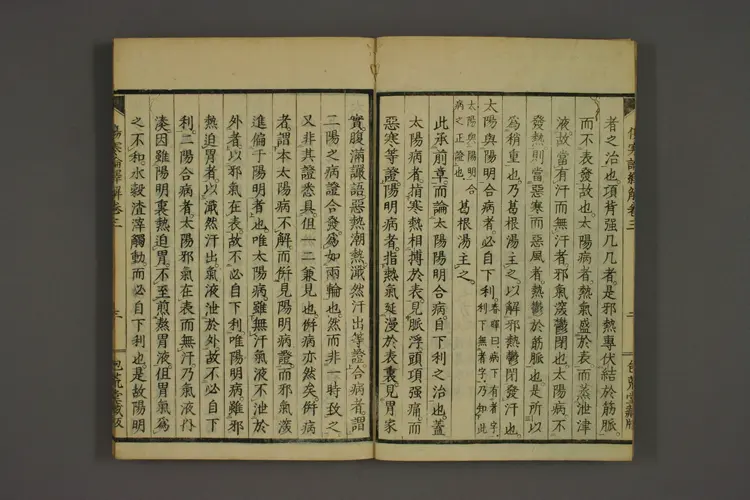 傷寒論繹解卷三
者之治也項背强几几者是邪熱專伏結於筋脈
而不表發故也太陽病者熱氣盛於表而蒸泄津
液故當有汗而無汗者邪氣滾鬱閉也太陽病不
發熱則當惡寒而惡風者熱鬱於筋脈也是所以
爲稍重也乃葛根湯主之以解邪熱鬱閉發汗也
太陽與陽明合病者必自下利春暉曰病下有者字利下無者字乃知此
太陽與陽明合病之正證也葛根湯主之
此承前章而論太陽陽明合病自下利之治也蓋
太陽病者指寒熱相搏於表見脈浮頭項强痛而
惡寒等證陽明病者指熱氣延漫於表裏見胃家
實腹滿讝語惡熱潮熱濈然汗出等證合病者謂
二陽之病證合發爲如兩輪也然而非一時致之
又非其證悉具但一二兼見也併病亦然矣併病
者謂本太陽病不解而併見陽明病證而邪氣滾
進偏于陽明者也唯太陽病雖無汗氣液不泄於
外者以邪氣在表故不必自下利唯陽明病雖邪
熱迫胃者以濈然汗出氣液泄於外故不必自下
利二陽合病者太陽邪氣在表而無汗乃氣液內
湊因雖陽明裏熱迫胃不至煎熬胃液但胃氣爲
之不和水穀渣滓觸動而必自下利也是故陽明
傷寒論繹解卷三